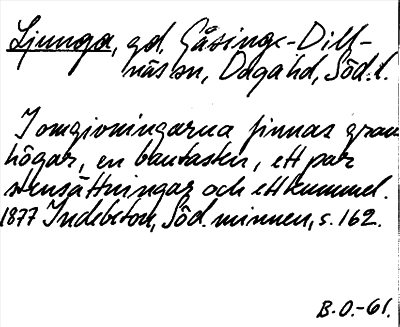 Ljunga, gd, Gåsinge-Dill-
näs sn, Daga hd, Söd. l.
I omgivningarna finnas grav
högar, en bautasten, ett par
stensättningar och ett kummel.
1877 Indebetou, Söd. minnen, s. 162.
B.O.-61.